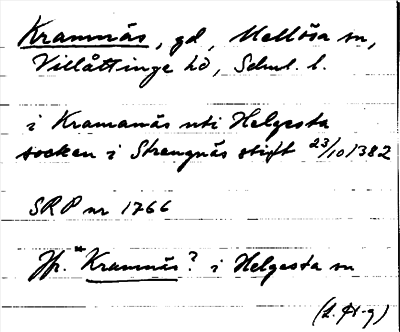 Kramnäs, gd, Mellösa sn,
Villåttinge hd, Söml. l.
i Kramanäs uti Helgesta
socken i Strengnäs stift 23/10 1382
SRP nr 1766
Jfr. *Kramnäs? i Helgesta sn